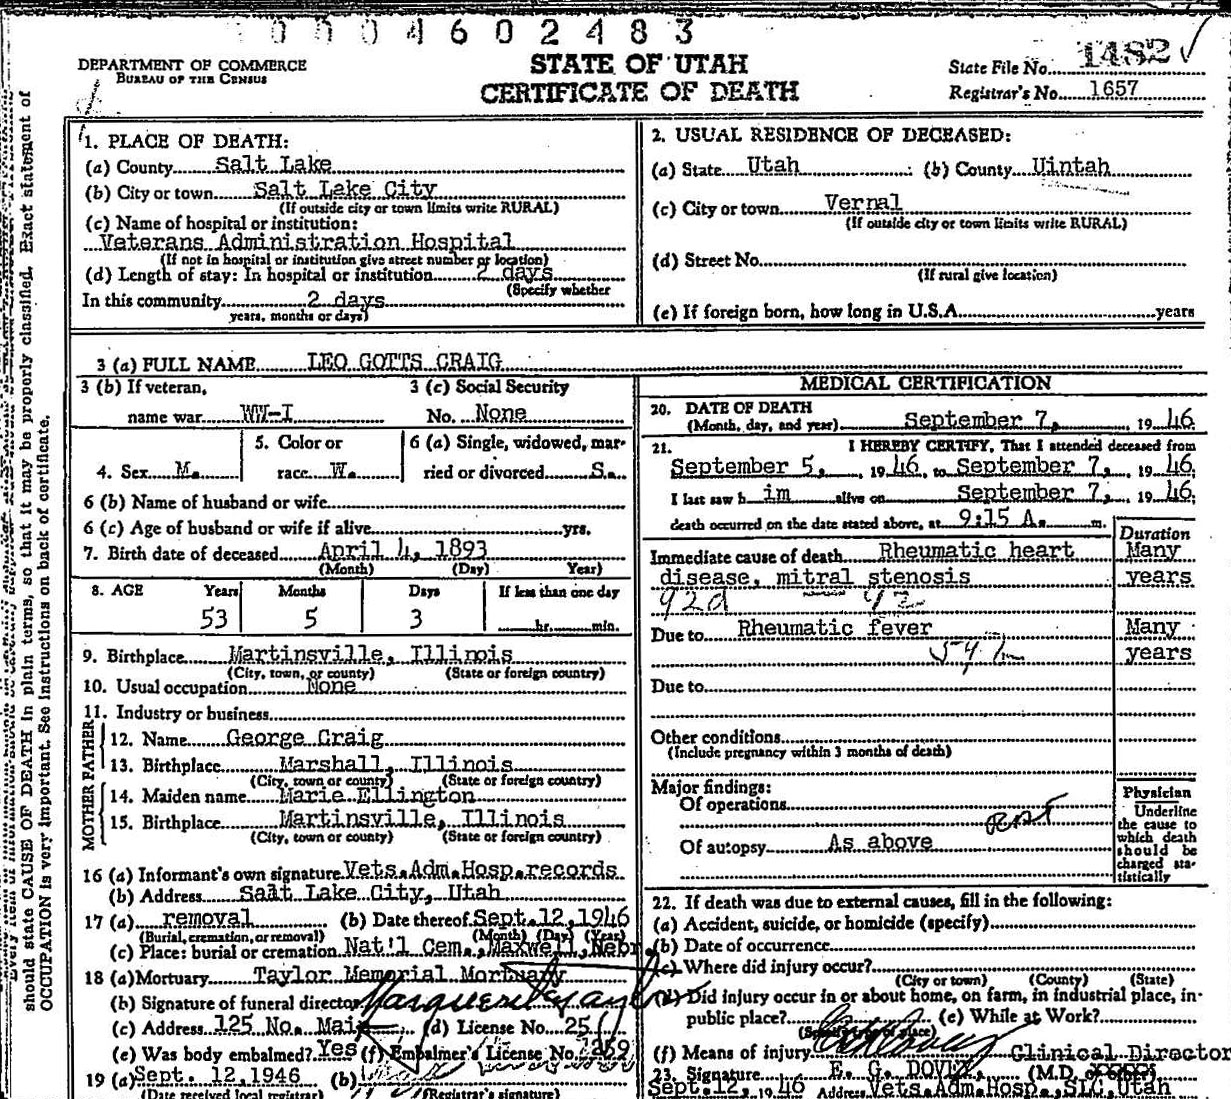 0004602483
DEPARTMENT OF COMMERCE
BUREAU OF THE CENSUS
STATE OF UTAH
CERTIFICATE OF DEATH
State File No. 1482
Registrar's No. 1657
should state CAUSE OF DEATH in plain terms, so that it may be properly classified. Exact statement of
OCCUPATION is very important. See instructions on back of certificate.
1. PLACE OF DEATH:
(a) County Salt Lake
(b) City or town Salt Lake City
(If outside city or town limits write RURAL)
(c) Name of hospital or institution:
Veterans Administration Hospital
(If not in hospital or institution give street number or location)
(d) Length of stay: In hospital or institution 2 days
(Specify whether
In this community 2 days
years, months or days)
2. USUAL RESIDENCE OF DECEASED:
(a) State Utah (b) County Uintah
(c) City or town Vernal
(If outside city or town limits write RURAL)
(d) Street No.
(If rural give location)
(e) If foreign born, how long in U.S.A. years
3 (a) FULL NAME LEO GOTTS CRAIG
3 (b) If veteran, 3 (c) Social Security
name war WW-I No. None
5. Color or 6 (a) Single, widowed, mar-
4. Sex M. race W. ried or divorced S.
6 (b) Name of husband or wife
6 (c) Age of husband or wife if alive yrs.
7. Birth date of deceased April 4, 1893
(Month) (Day) Year)
8. AGE Years Months Days If less than one day
53 5 3 hr. min.
9. Birthplace Martinsville, Illinois
(City, town, or county) (State or foreign country)
10. Usual occupation None
11. Industry or business
FATHER
12. Name George Craig
13. Birthplace Marshall, Illinois
(City, town or county) (State or foreign country)
MOTHER
14. Maiden name Marie Ellington
15. Birthplace Martinsville, Illinois
(City, town or county) (State or foreign country)
16 (a) Informant's own signature Vets.Adm.Hosp.records
(b) Address Salt Lake City, Utah
17 (a) removal (b) Date thereof Sept.12,1946
(Burial, cremation, or removal) (Month) (Day) (Year)
(c) Place: burial or cremation Nat'l Cem., Maxwell, Nebr.
18 (a) Mortuary Taylor Memorial Mortuary
(b) Signature of funeral director
(c) Address 125 No. Main (d) License No. 25
(e) Was body embalmed? Yes (f) Embalmer's License No. 259
19 (a) Sept. 12,1946 (b)
(Date received local registrar) (Registrar's signature)
MEDICAL CERTIFICATION
20. DATE OF DEATH
(Month, day, and year) September 7, 1946
21. I HEREBY CERTIFY, That I attended deceased from
September 5, 1946, to September 7, 1946;
I last saw h im alive on September 7, 1946;
death occurred on the date stated above, at 9:15 A. m.
Duration
Immediate cause of death Rheumatic heart Many
disease, mitral stenosis years
92d
Due to Rheumatic fever Many
years
Due to
Other conditions
(Include pregnancy within 3 months of death)
Major findings:
Of operations
Of autopsy As above
Physician
Underline
the cause to
which death
should be
charged sta-
tistically
22. If death was due to external causes, fill in the following:
(a) Accident, suicide, or homicide (specify)
(b) Date of occurrence
(c) Where did injury occur?
(City or town) (County) (State)
(d) Did injury occur in or about home, on farm, in industrial place, in-
public place? (e) While at Work?
(Specify type of place)
(f) Means of injury Clinical Director
23. Signature E. G. DOVEY (M.D.
Sept.12, 1946 Address Vets.Adm.Hosp.,SLC,Utah